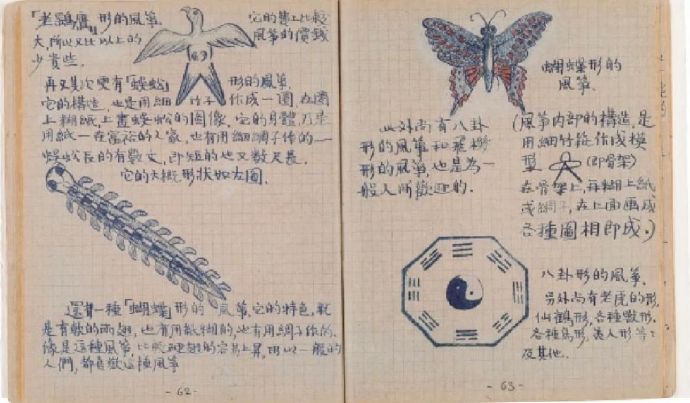 「老鷂鷹」形的風箏.
它的麯上比較
大,所以又比以上的
風箏的價錢
少貴些.
再又其次更有「蜈蚣」
形的風箏.
它的構造,也是用細
竹子
作成一圈,在圈
上糊紙上畫蜈蚣的圖像,它的身體乃是
用紙一在富裕的人家,也有用綢子作的一
蜈蚣長的有數丈,即短的也又數尺長.
它的大概形狀如左圖.
還有一種「蝴蝶」形的風箏,它的特色,就
是有軟的兩翅,也有用紙糊的,也有用綢子作的,
像是這種風箏比較硬翅的容易上昇,所以一般的
人們,都喜歡這種風箏
-62-
蝴蝶形的
風箏.
此外尚有八卦
形的風箏和
形的風箏,也是為一
般人所歡迎的.
(風箏内部的構造,是
用細竹篾作成模
型
(即骨架)
在骨架上,再糊上紙
或綢子,在上面画成
各種圖相即成.)
八卦形的風箏.
另外尚有老虎的形,
仙鶴形,各種獸形,
各種鳥形,美人形等:
及其他.
-63-